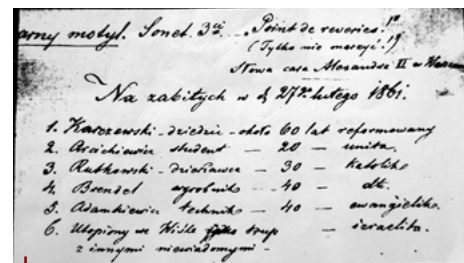 arny motyl. Sonet. 3ci — „Point de reveries."
(Tylko nie marzyć!)
Słowa cara Alexandra II w
Na zabitych w d. 27. lutego 1861.
1. Karczewski - dziedzic - około 60 lat reformowany
2. Arcichiewicz student — 20 — unita.
3. Rutkowski - dzierżawca — 30 — katolik
4. Brendel wyrobnik — 40 — dt.
5. Adamkiewicz technik — 40 — ewangielik.
6. Utopiony we Wiśle trup — izraelita.
z innymi niewiadomymi -